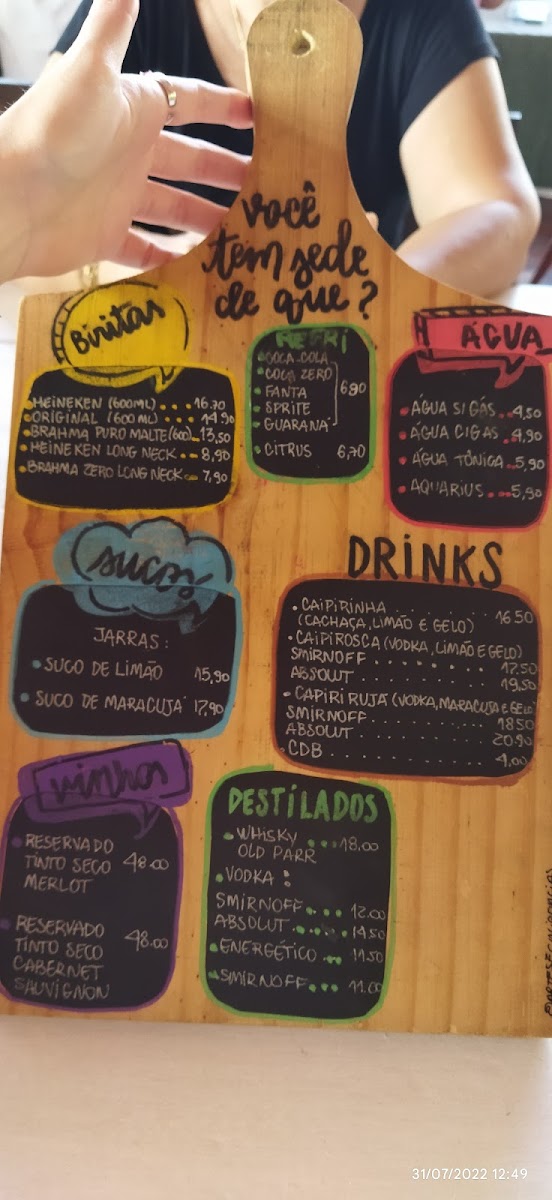 você
tem sede
de que?
Biritas
HEINEKEN (600ML) .... 16.70
ORIGINAL (600 ML) ... 14.90
BRAHMA PURO MALTE (600) .. 13,50
HEINEKEN LONG NECK ... 8,90
BRAHMA ZERO LONG NECK ... 7,90
REFRI
COCA-COLA
COCA ZERO
FANTA 6,90
SPRITE
GUARANÁ
CITRUS 6,70
ÁGUA
ÁGUA S/GÁS .. 4,50
ÁGUA C/GAS .. 4,90
ÁGUA TÔNICA .. 5,90
AQUARIUS ... 5,90
sucos
JARRAS:
SUCO DE LIMÃO 15,90
SUCO DE MARACUJÁ 17,90
DRINKS
CAIPIRINHA ........ 16.50
(CACHAÇA, LIMÃO E GELO)
CAIPIROSCA (VODKA, LIMÃO E GELO)
SMIRNOFF ........ 17.50
ABSOLUT ........ 19,50
CAPIRIRUJÁ (VODKA, MARACUJA E GELO
SMIRNOFF ........ 18.50
ABSOLUT ........ 20.90
CDB ........ 4,00
vinhos
RESERVADO
TINTO SECO 48.00
MERLOT
RESERVADO
TINTO SECO 48.00
CABERNET
SAUVIGNON
DESTILADOS
WHISKY ... 18.00
OLD PARR
VODKA:
SMIRNOFF .... 12.00
ABSOLUT ..... 14.50
ENERGÉTICO ... 11.50
SMIRNOFF .... 11.00
31/07/2022 12:49